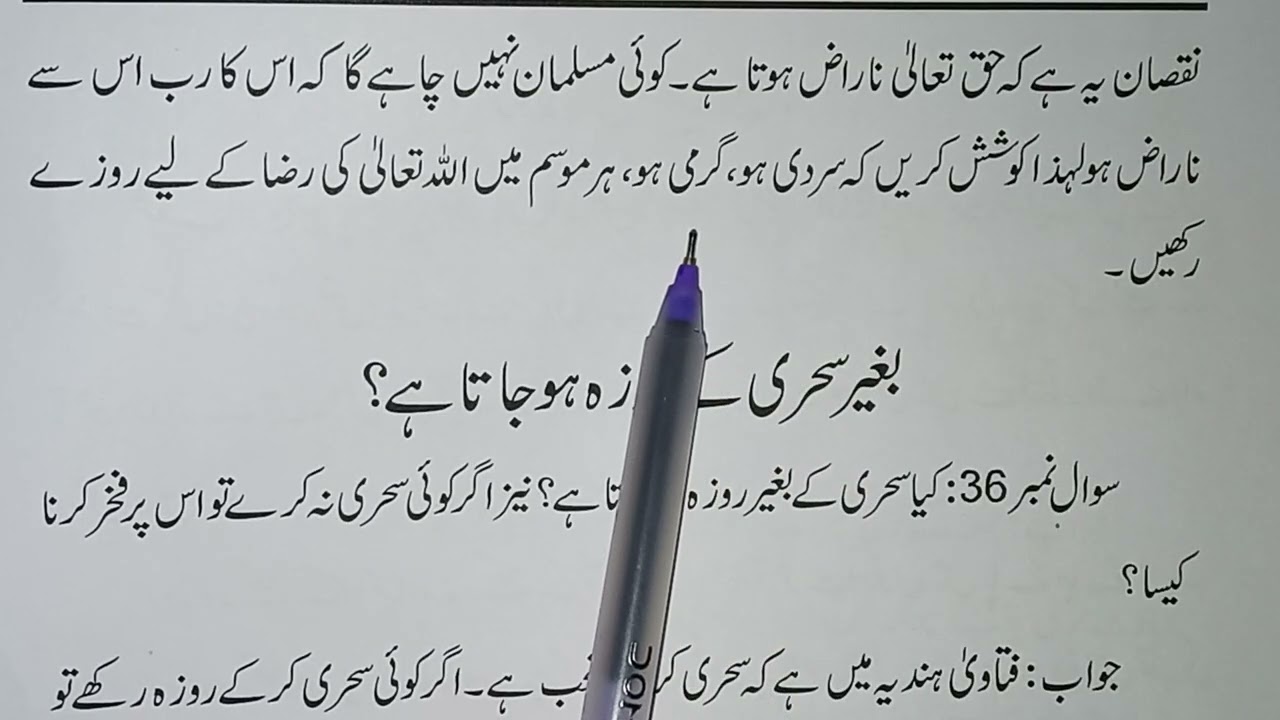 نقصان یہ ہے کہ حق تعالیٰ ناراض ہوتا ہے۔ کوئی مسلمان نہیں چاہے گا کہ اس کا رب اس سے
ناراض ہو لہذا کوشش کریں کہ سردی ہو، گرمی ہو، ہر موسم میں اللہ تعالیٰ کی رضا کے لیے روزے
رکھیں۔
بغیر سحری کے زہ ہو جاتا ہے؟
سوال نمبر 36: کیا سحری کے بغیر روزہ تا ہے؟ نیز اگر کوئی سحری نہ کرے تو اس پر فخر کرنا
کیسا؟
جواب: فتاویٰ ہندیہ میں ہے کہ سحری کر ہے۔ اگر کوئی سحری کر کے روزہ رکھے تو